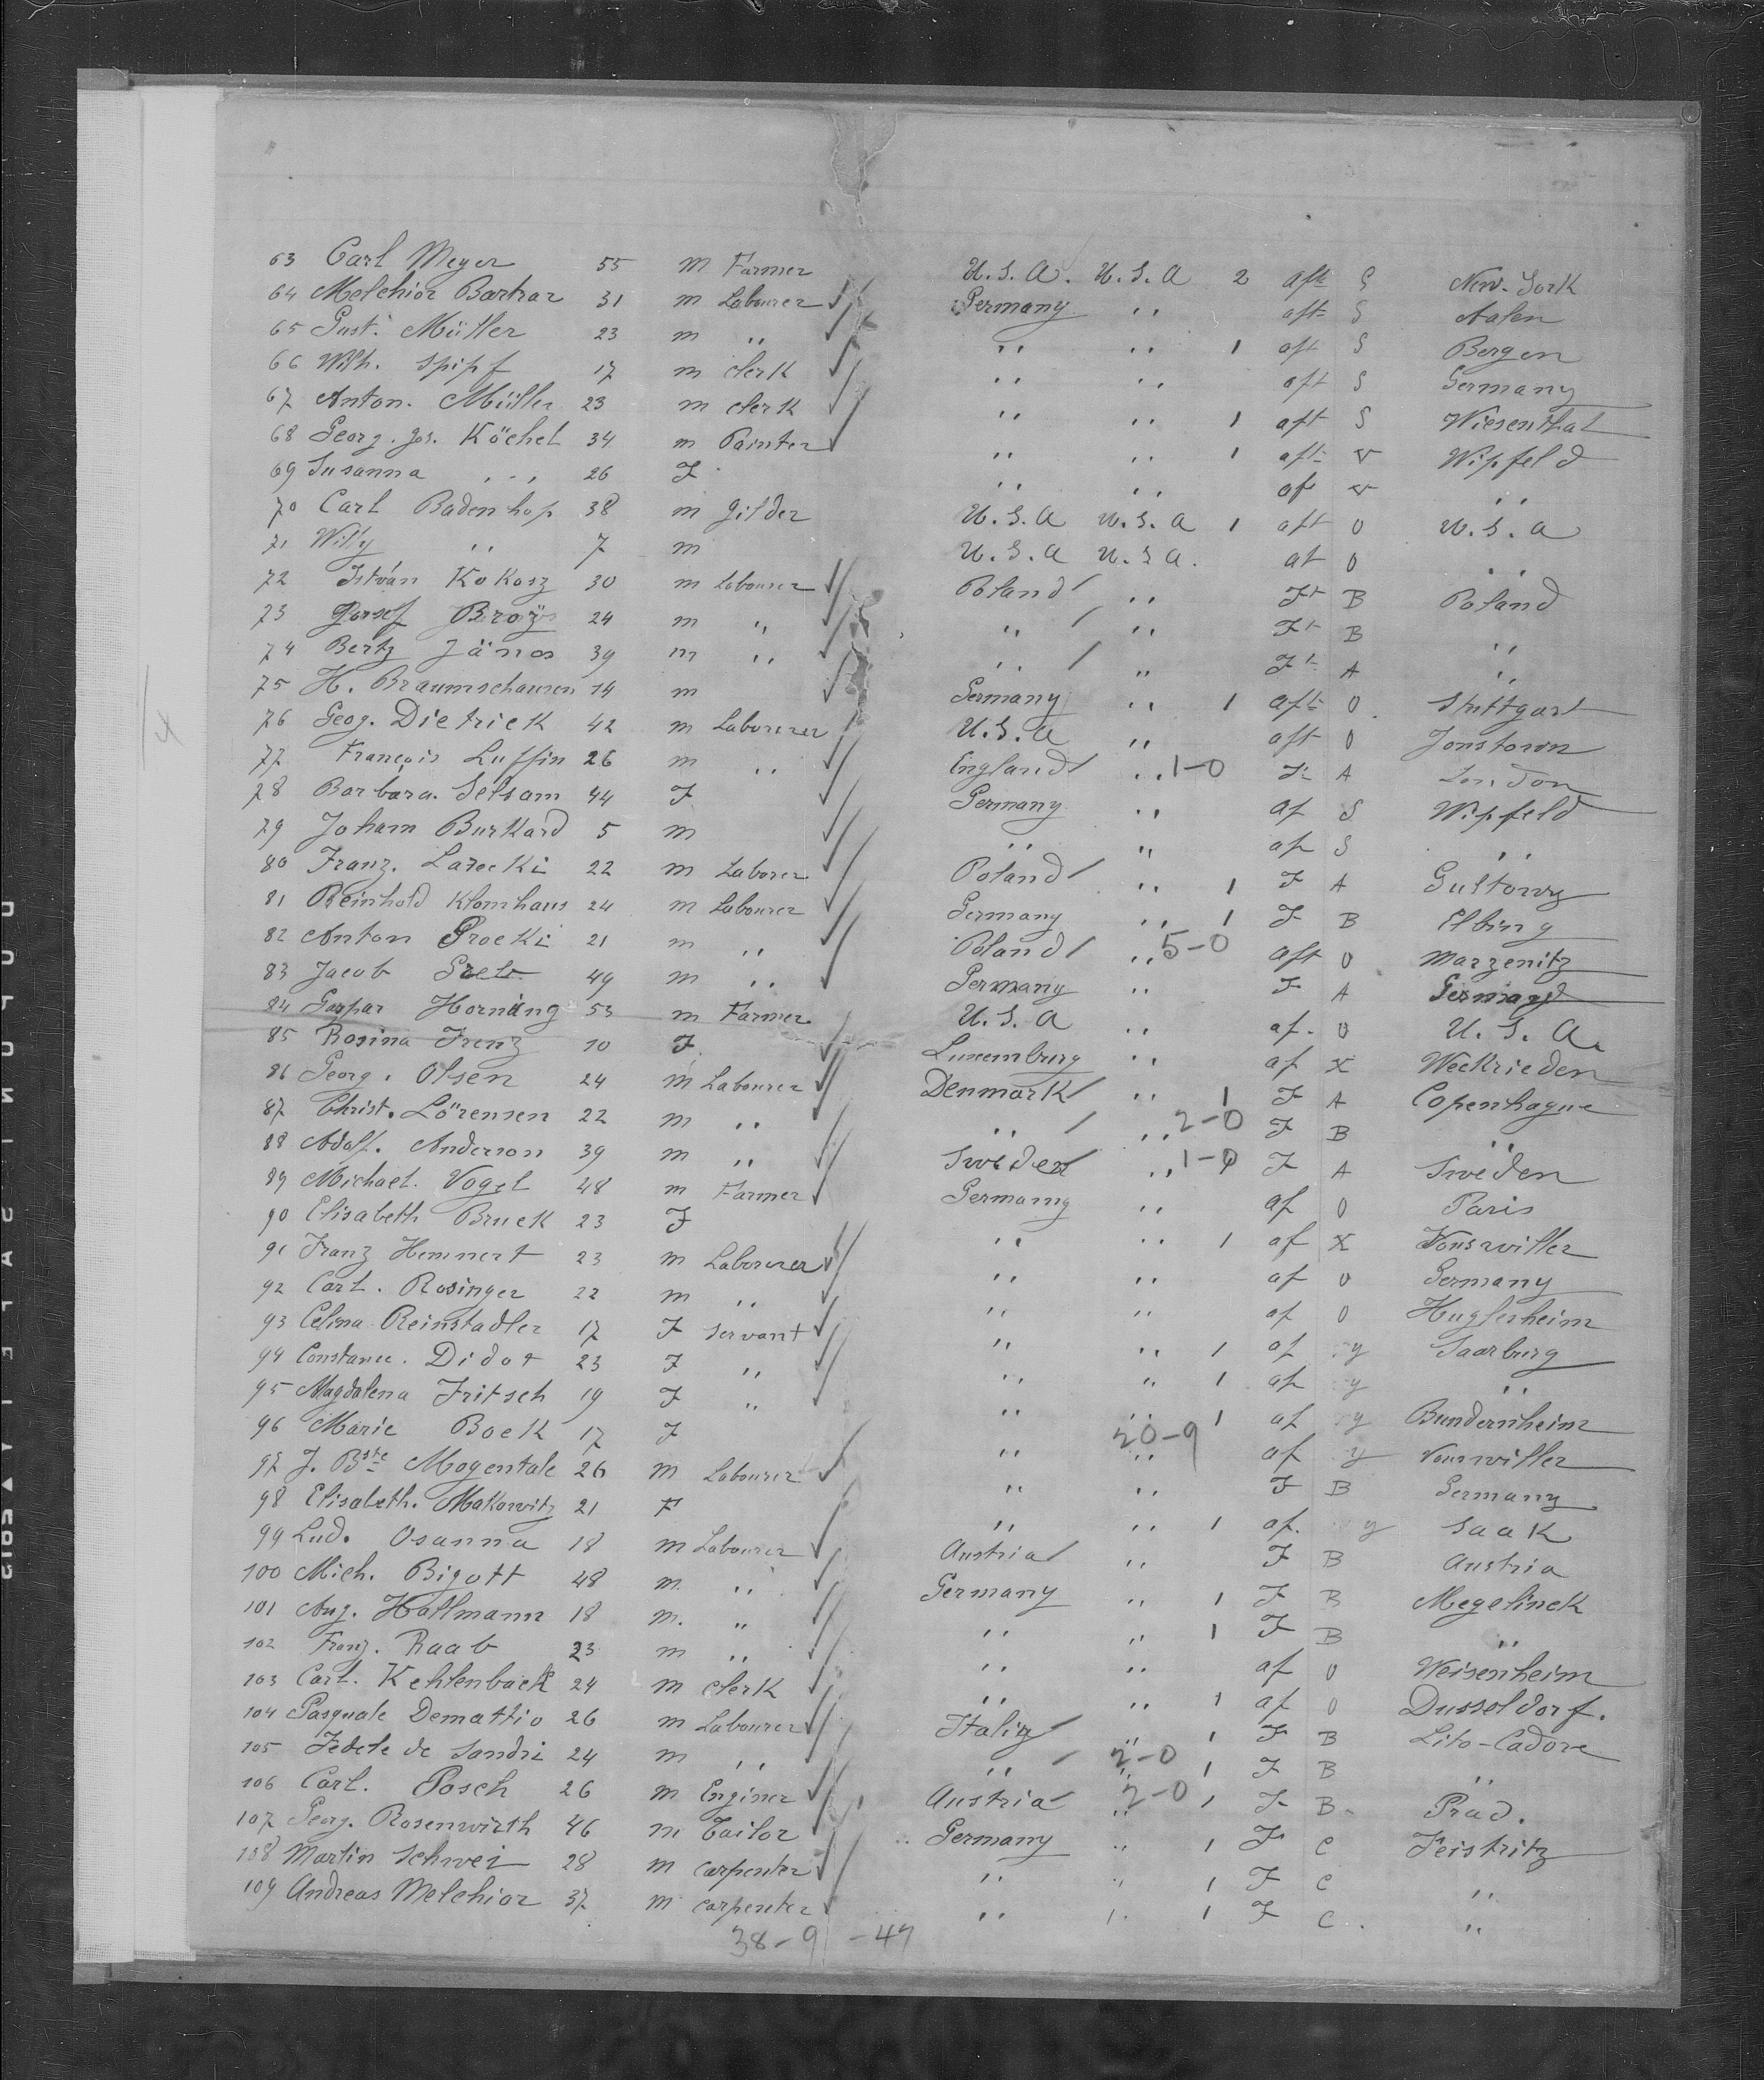 63 Carl Meyer 55 m Farmer U.S.A. U.S.A 2 aft S New-York
64 Melchior Bartrar 31 m Labourer Germany ,, aft S Aalen
65 Gust. Müller 23 m ,, ,, ,, 1 aft S Bergen
66 Wilh. Spipf 17 m clerk ,, ,, aft S Germany
67 Anton. Müller 23 m clerk ,, ,, 1 aft S Wiesenthal
68 Georg. Jos. Köchel 34 m Painter ,, ,, 1 aft V Wipfeld
69 Susanna ,, 26 F ,, ,, af V ,,
70 Carl Badenhop 38 m Gilder U.S.A U.S.A 1 aft O U.S.A
71 Willy ,, 7 m U.S.A U.S.A. at O ,,
72 István Kokosz 30 m Labourer Poland ,, Ft B Poland
73 Broz 24 m ,, ,, ,, Ft B ,,
74 Bertz János 39 m ,, ,, ,, Ft A ,,
75 H. Braumschausen 14 m Germany ,, 1 aft O Stuttgart
76 Geog. Dietrick 42 m Labourer U.S.A ,, aft O Jonstown
77 François Luffin 26 m ,, England ,, 1-0 F A London
78 Barbara. Selsam 44 F Germany ,, af S Wipfeld
79 Joham Burkard 5 m ,, ,, af S ,,
80 Franz. Lazecki 22 m Laborer Poland ,, 1 F A Gultowy
81 Reinhold Klomhaus 24 m Labourer Germany ,, 1 F B Elbing
82 Anton Grocki 21 m ,, Poland ,, 5-0 aft O Marzenitz
83 Jacob 49 m ,, Germany ,, F A Germany
84 Gaspar Hornung 53 m Farmer U.S.A ,, af. O U.S.A.
85 Rosina Frenz 10 F Luxemburg ,, af X Weckrieden
86 Georg. Olsen 24 m Labourer Denmark ,, 1 F A Copenhague
87 Christ. Lörensen 22 m ,, ,, ,, 2-0 F B ,,
88 Adolf. Anderson 39 m ,, Sweden ,, 1-0 F A Sweden
89 Michael. Vogel 48 m Farmer Germany ,, af O Paris
90 Elisabeth Bruck 23 F ,, ,, 1 af X Vonswiller
91 Franz Hemmert 23 m Labourer ,, ,, af O Germany
92 Carl. Rosinger 22 m ,, ,, ,, af O Huglesheim
93 Celina Reinstadler 17 F Servant ,, ,, 1 af y Saarburg
94 Constance. Didot 23 F ,, ,, ,, 1 af y ,,
95 Magdalena Fritsch 19 F ,, ,, ,, 1 af y Bundernheim
96 Marie Boek 17 F ,, 20-9 ,, af y Vonswiller
97 J. Bste Mogentale 26 m Labourer ,, ,, F B Germany
98 Elisabeth. Makowitz 21 F ,, ,, 1 af. y Saak
99 Lud. Osanna 18 m Labourer Austria ,, F B Austria
100 Mich. Bigott 48 m ,, Germany ,, 1 F B Megelinck
101 Aug. Hallmann 18 m. ,, ,, ,, 1 F B ,,
102 Franz. Raab 23 m ,, ,, ,, af O Weisenheim
103 Carl. Kehlenback 24 m clerk ,, ,, 1 af O Dusseldorf.
104 Pasquale Demattio 26 m Labourer Italiy ,, 1 F B Lito-Cadore
105 Fedele de Sandri 24 m ,, ,, 2-0 1 F B ,,
106 Carl. Posch 26 m Enginer Austria 2-0 ,, 1 F B. Prad.
107 Georg. Rosenwirth 46 m Tailor Germany ,, 1 F C Feistritz
108 Martin Schwei 28 m carpenter ,, ,, 1 F C ,,
109 Andreas Melchior 37 m carpenter ,, ,, 1 F C. ,,
38-9 -47